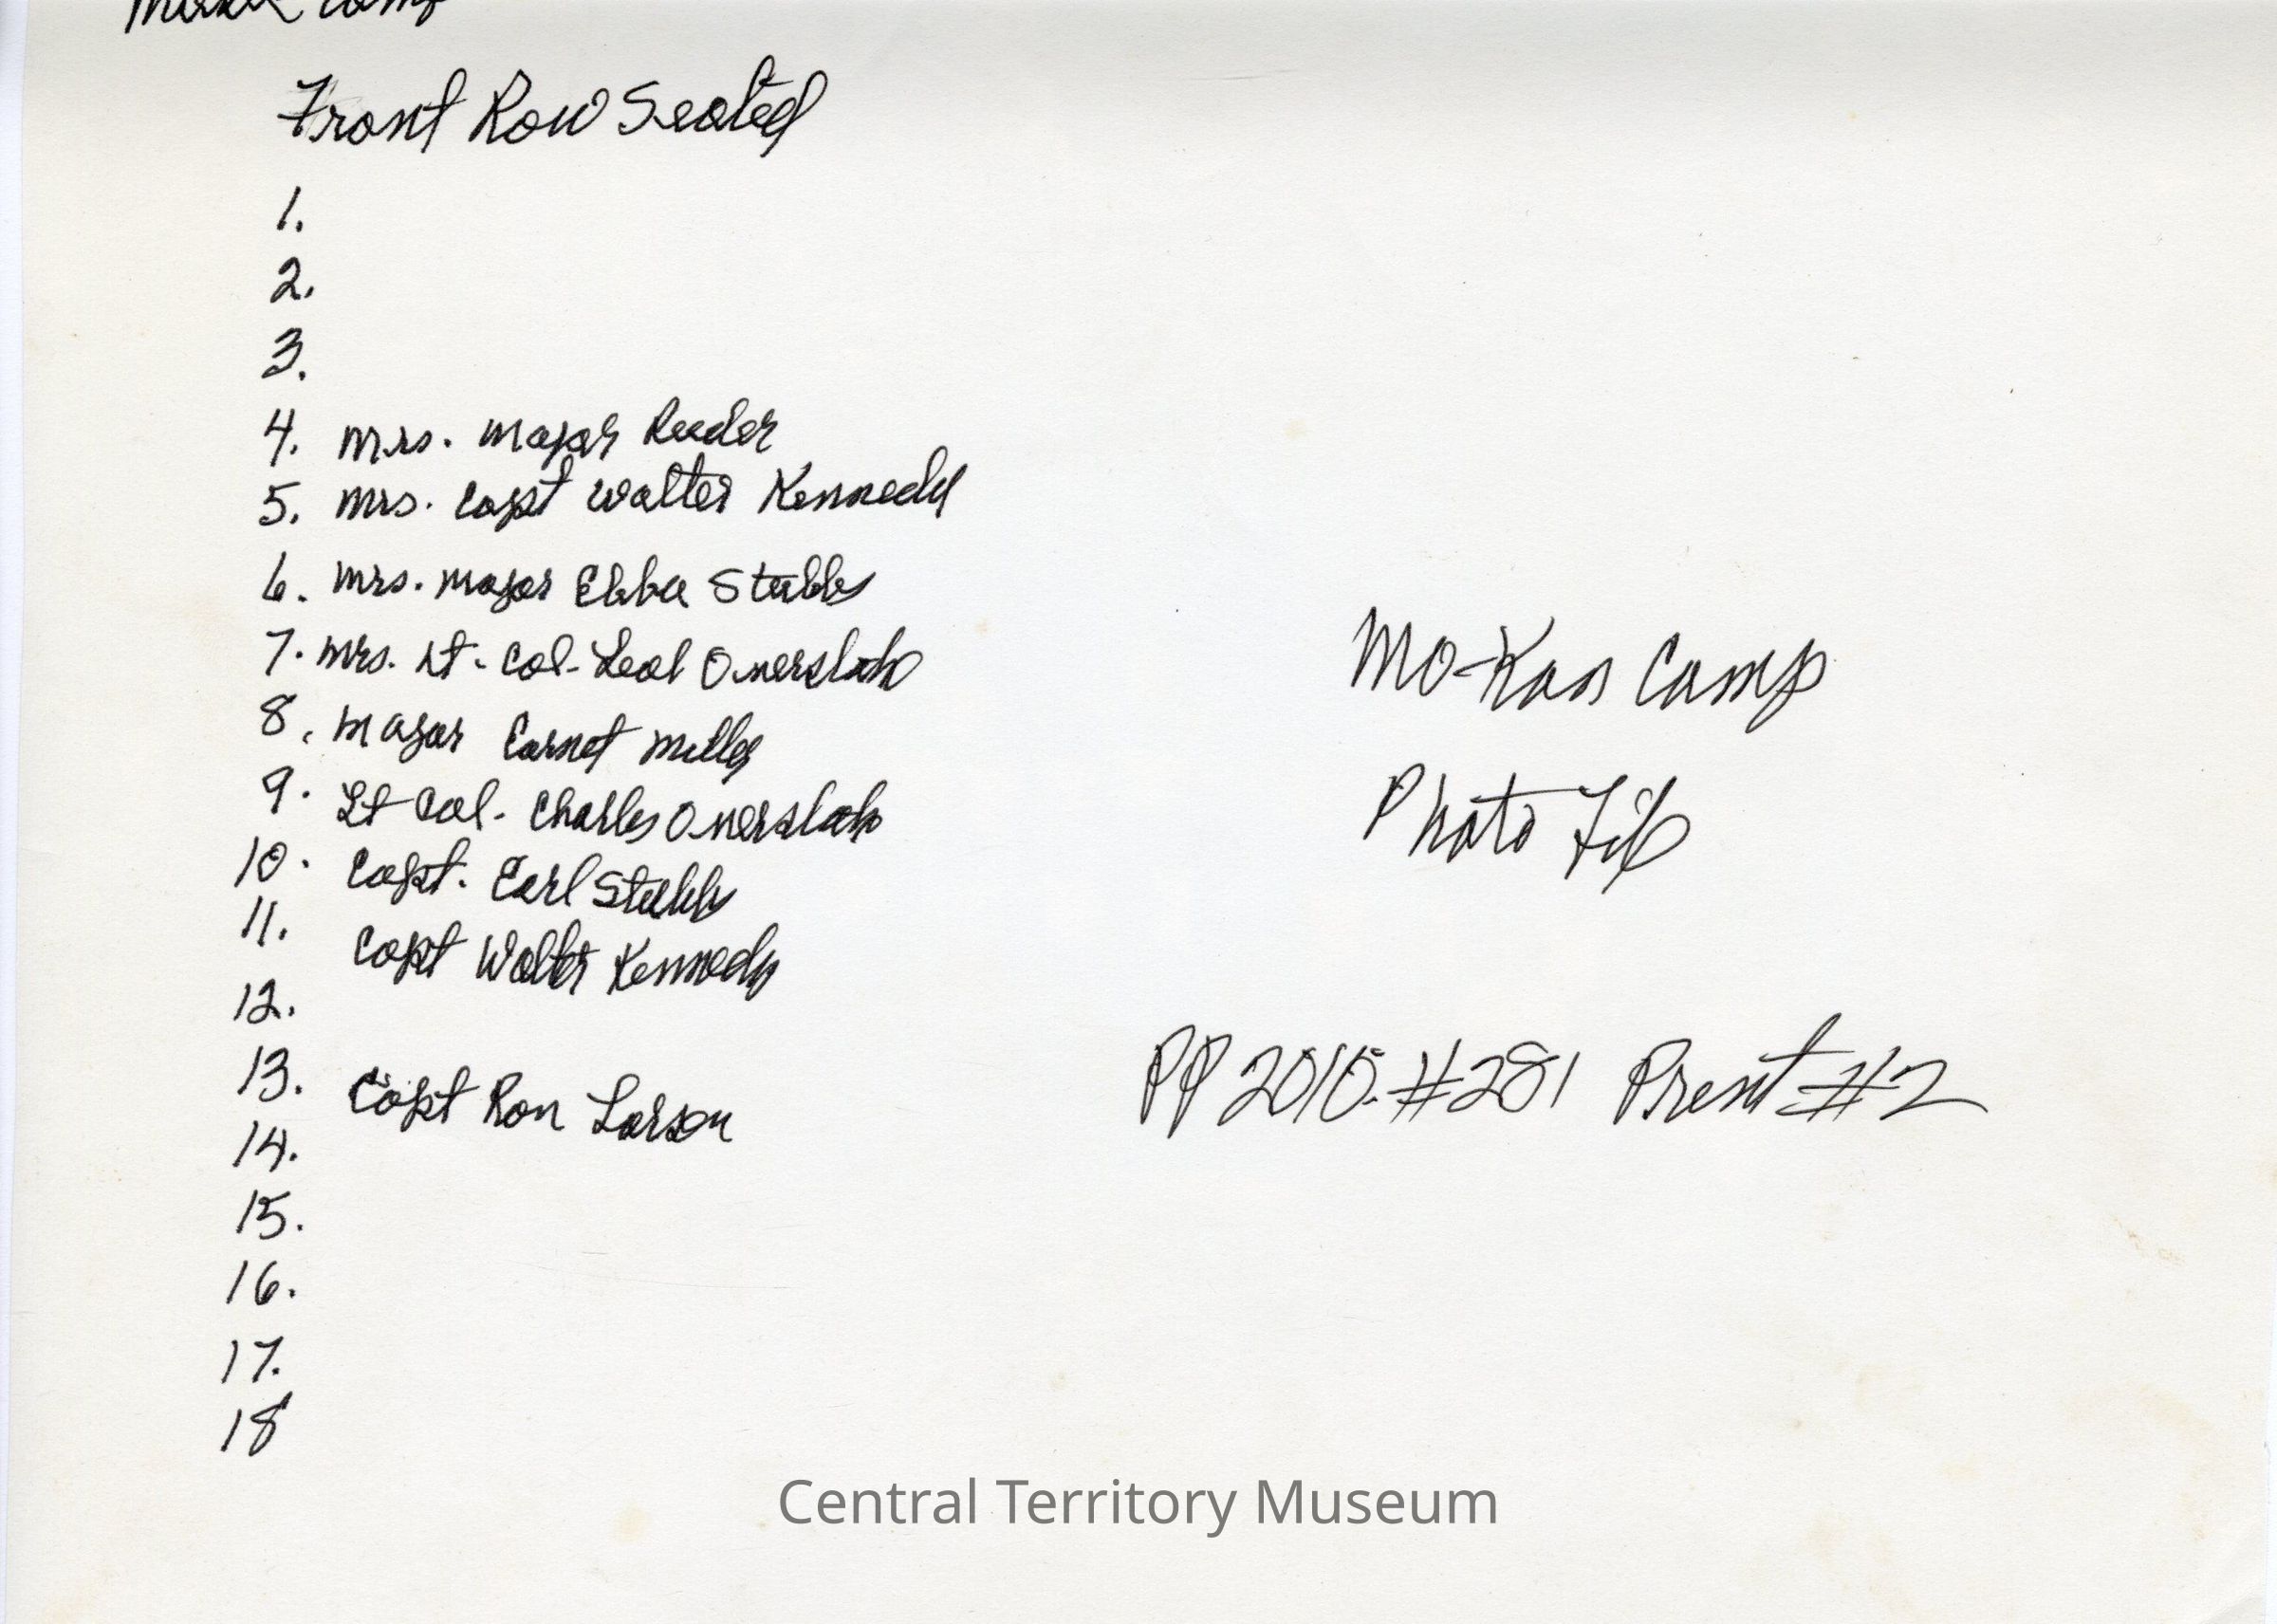 Camp
Front Row Seated
1.
2.
3.
4. Mrs. Major Reeder
5. Mrs. Capt Walter Kennedy
6. Mrs. Major Ebba Stubbs
7. Mrs. Lt. Col. Leah Overslah
8. Major Cornet Miller
9. Lt Col. Charles Overslah
10. Capt. Earl Stubbs
11. Capt Walter Kennedy
12.
13. Capt Ron Larson
14.
15.
16.
17.
18
Mo-Kan Camp
Photo File
PP 2010. #281 Print #2
Central Territory Museum